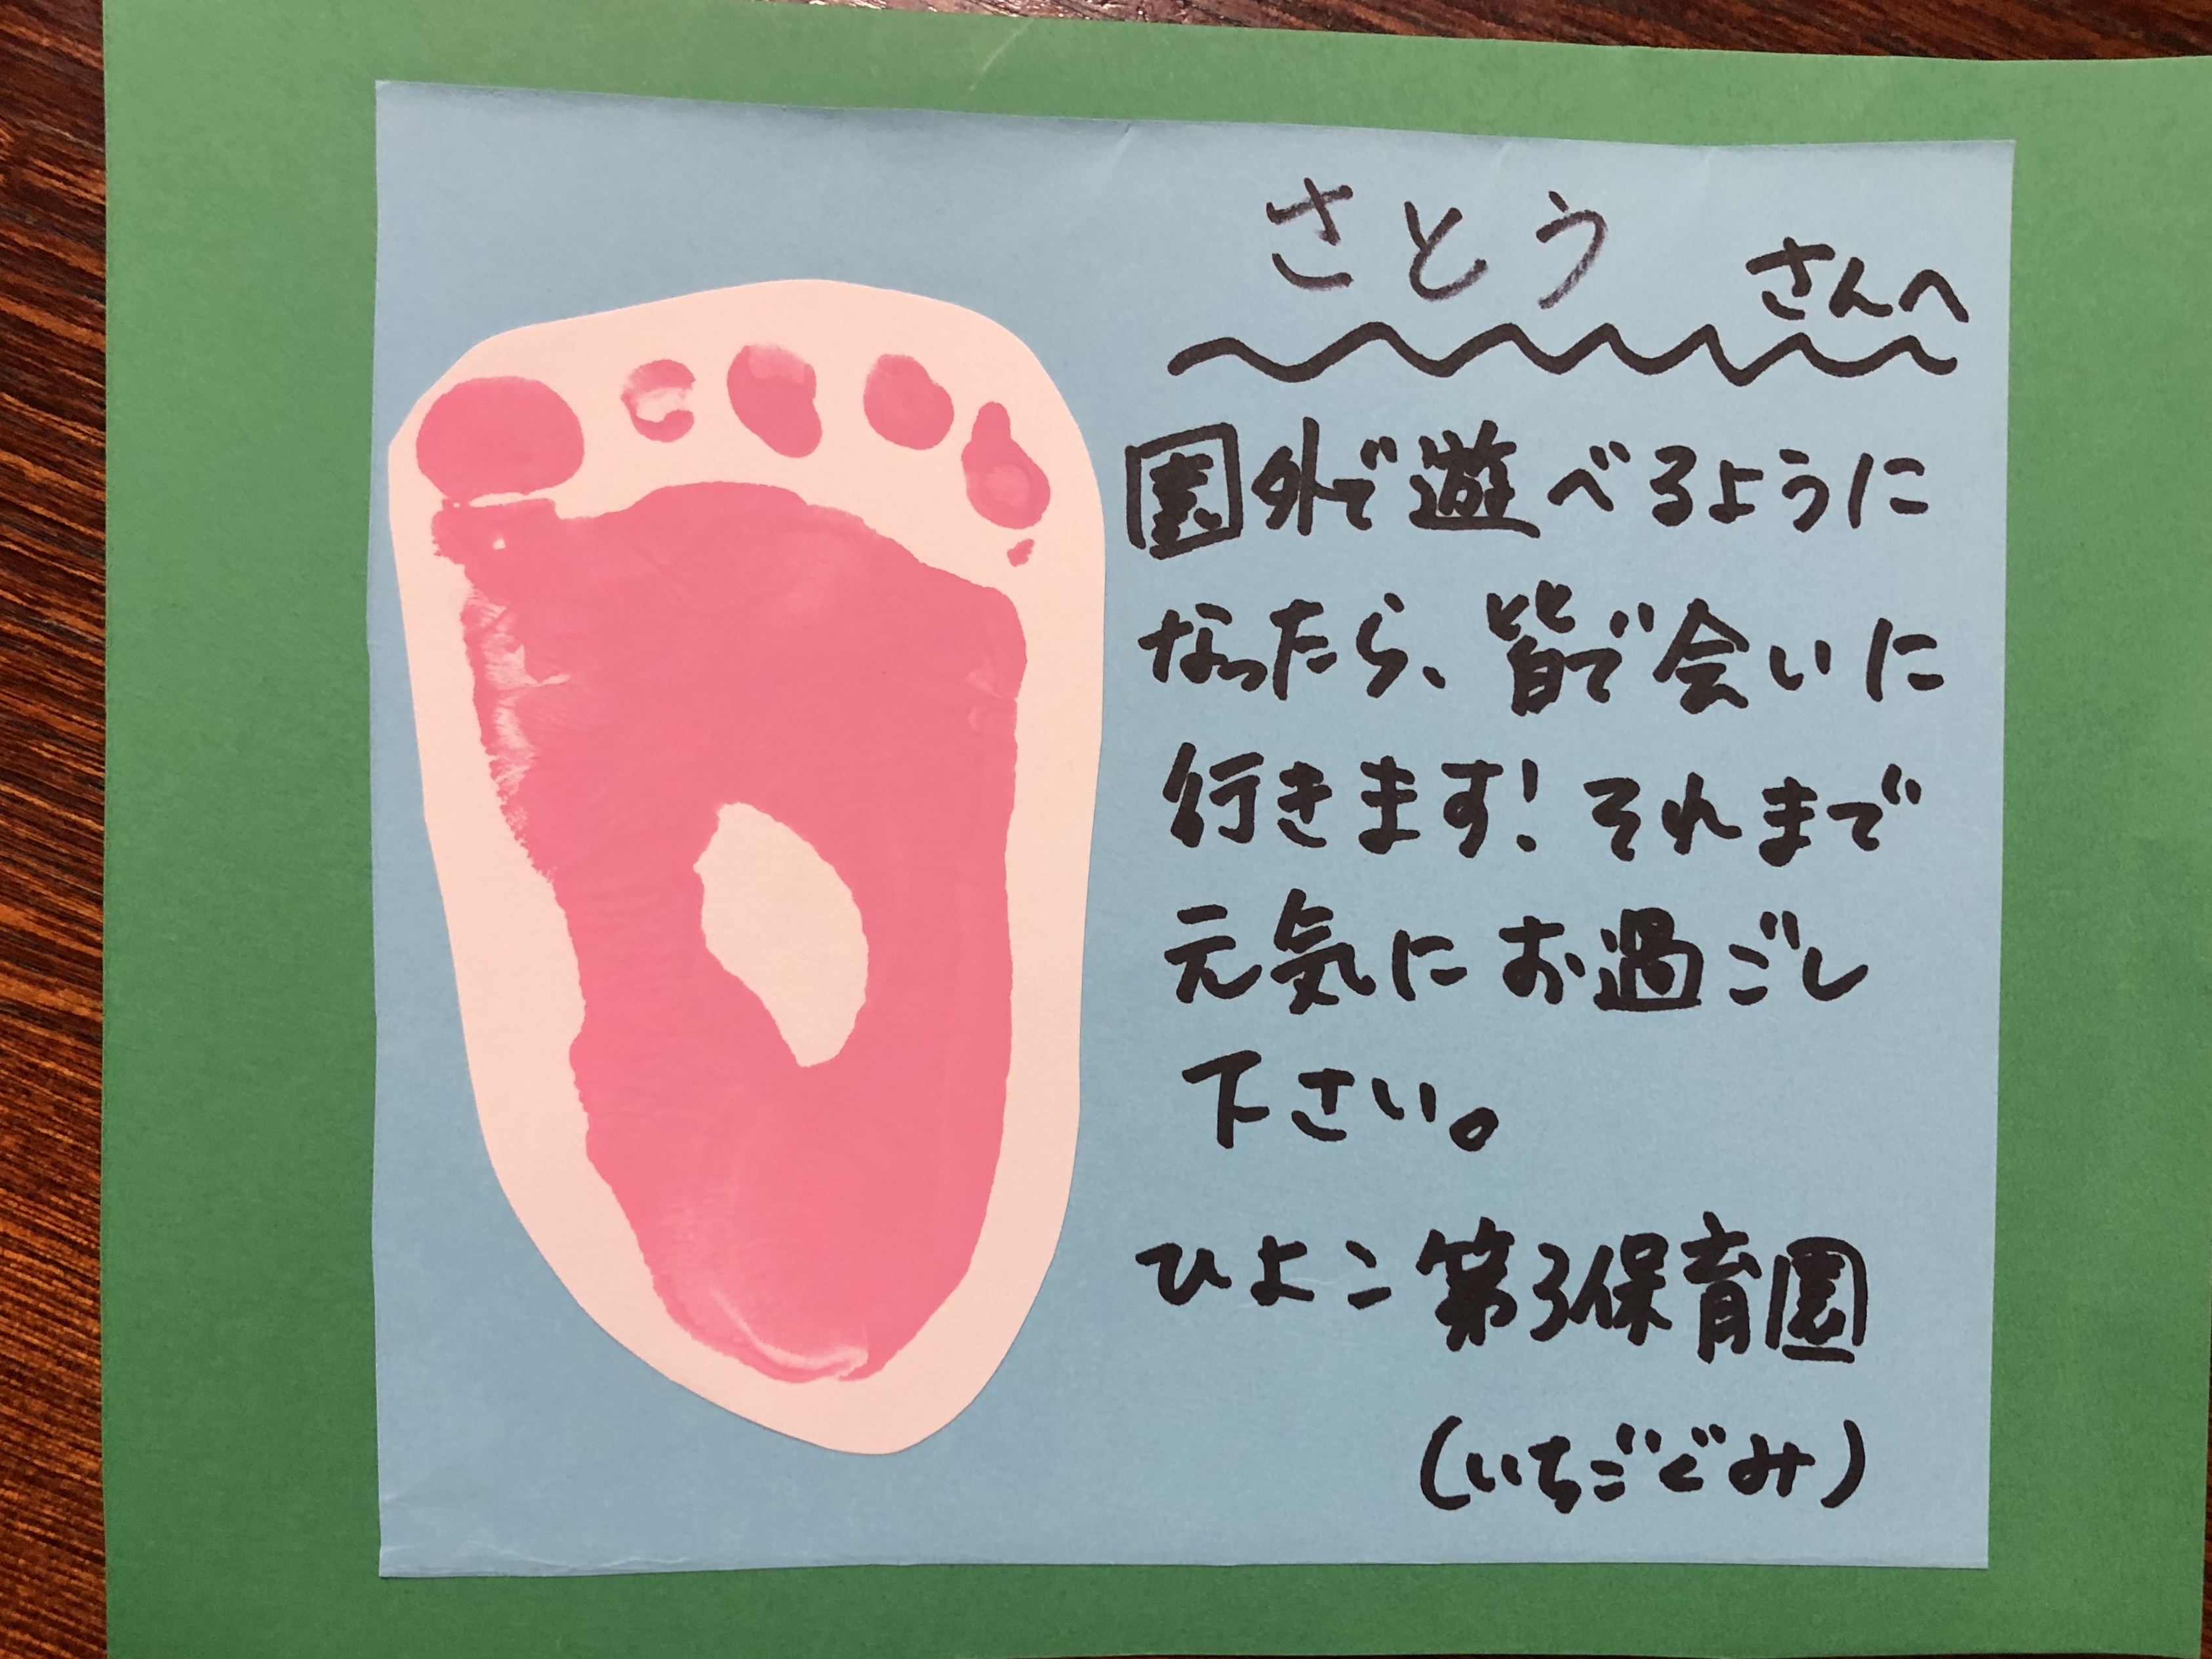 さとう さんへ
園外で遊べるように
なったら、皆で会いに
行きます!それまで
元気にお過ごし
下さい。
ひよこ第3保育園
(いちごぐみ)